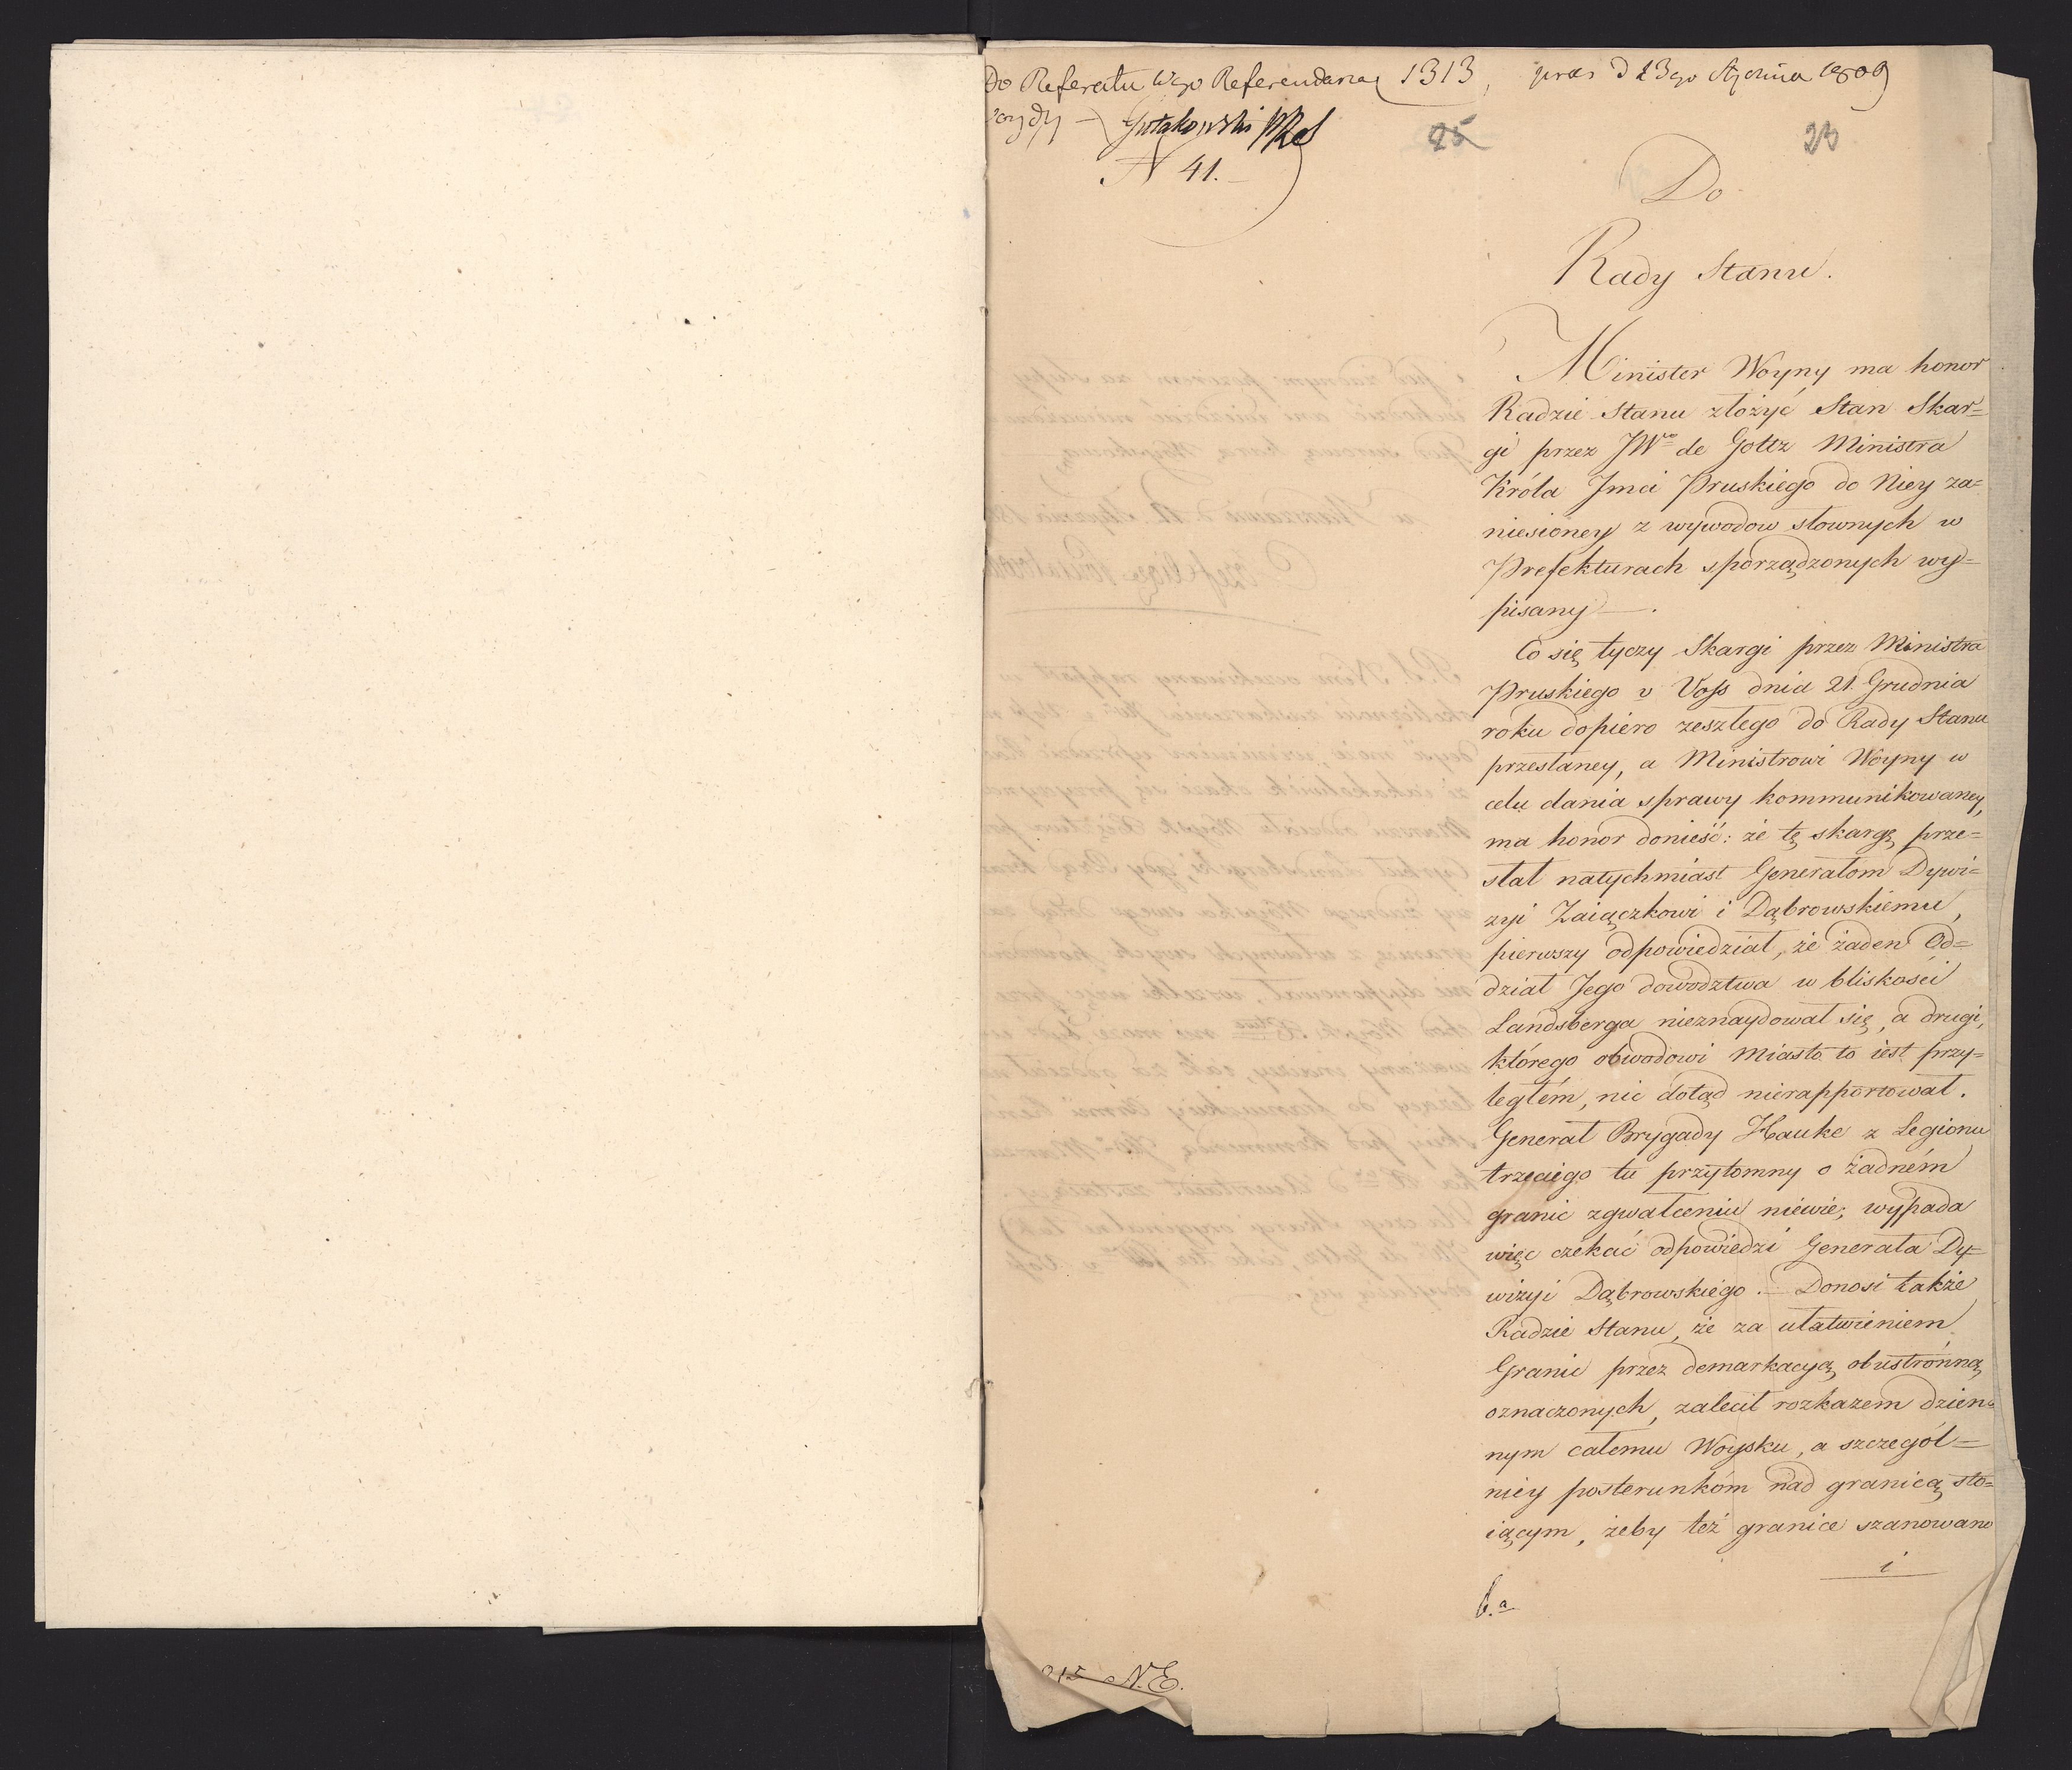 Do Referatu Wgo Referendarza 1313, prez d 23go Stycznia 1809
Gutakowski PRS
N 41.
25
25
Do
Rady Stanu.
Minister Woyny ma honor
Radzie Stanu złożyć Stan Skar=
gi przez JWo de Goltz Ministra
Króla Jmci Pruskiego do Niey za=
niesioney z wywodow słownych w
Prefekturach sporządzonych wy=
pisany —.
Co się tyczy Skargi przez Ministra
Pruskiego v Voss dnia 21. Grudnia
roku dopiero zeszłego do Rady Stanu
przesłaney, a Ministrowi Woyny w
celu dania sprawy kommunikowaney,
ma honor donieść: że tę skargę prze=
słał natychmiast Generałom Dywi=
zyi Zaiączkowi i Dąbrowskiemu,
pierwszy odpowiedział, że żaden Od=
dział Jego dowództwa w bliskości
Landsberga nieznaydował się, a drugi,
którego obwodowi Miasto to iest przy=
ległém, nic dotąd nierapportował.
Generał Brygady Hauke z Legionu
trzeciego tu przytomny o żadném
granic zgwałceniu niewie; wypada
więc czekać odpowiedzi Generała Dy=
wizyi Dąbrowskiego. — Donosi także
Radzie Stanu, że za ułatwieniem
Granic przez demarkacyą obustronną
oznaczonych, zalecił rozkazem dzien=
nym całemu Woysku, a szczegól=
niey posterunkóm nad granicą sto=
iącym, żeby też granice szanowano
i
b.a
N.E.